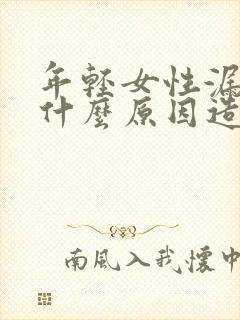 年輕女性漏
什麼原因造
南風入我懷中